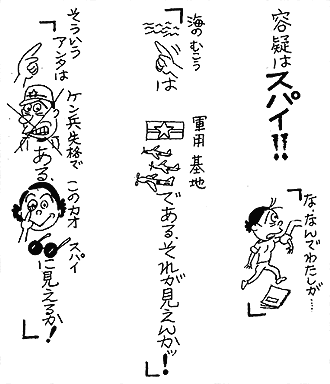 容疑はスパイ!!
「な、なんでわたしが…」
「海のむこうは
軍用基地である、それが見えんかッ!」
「そういうアンタは
ケン兵失格である、
このカオスパイに見えるか!」